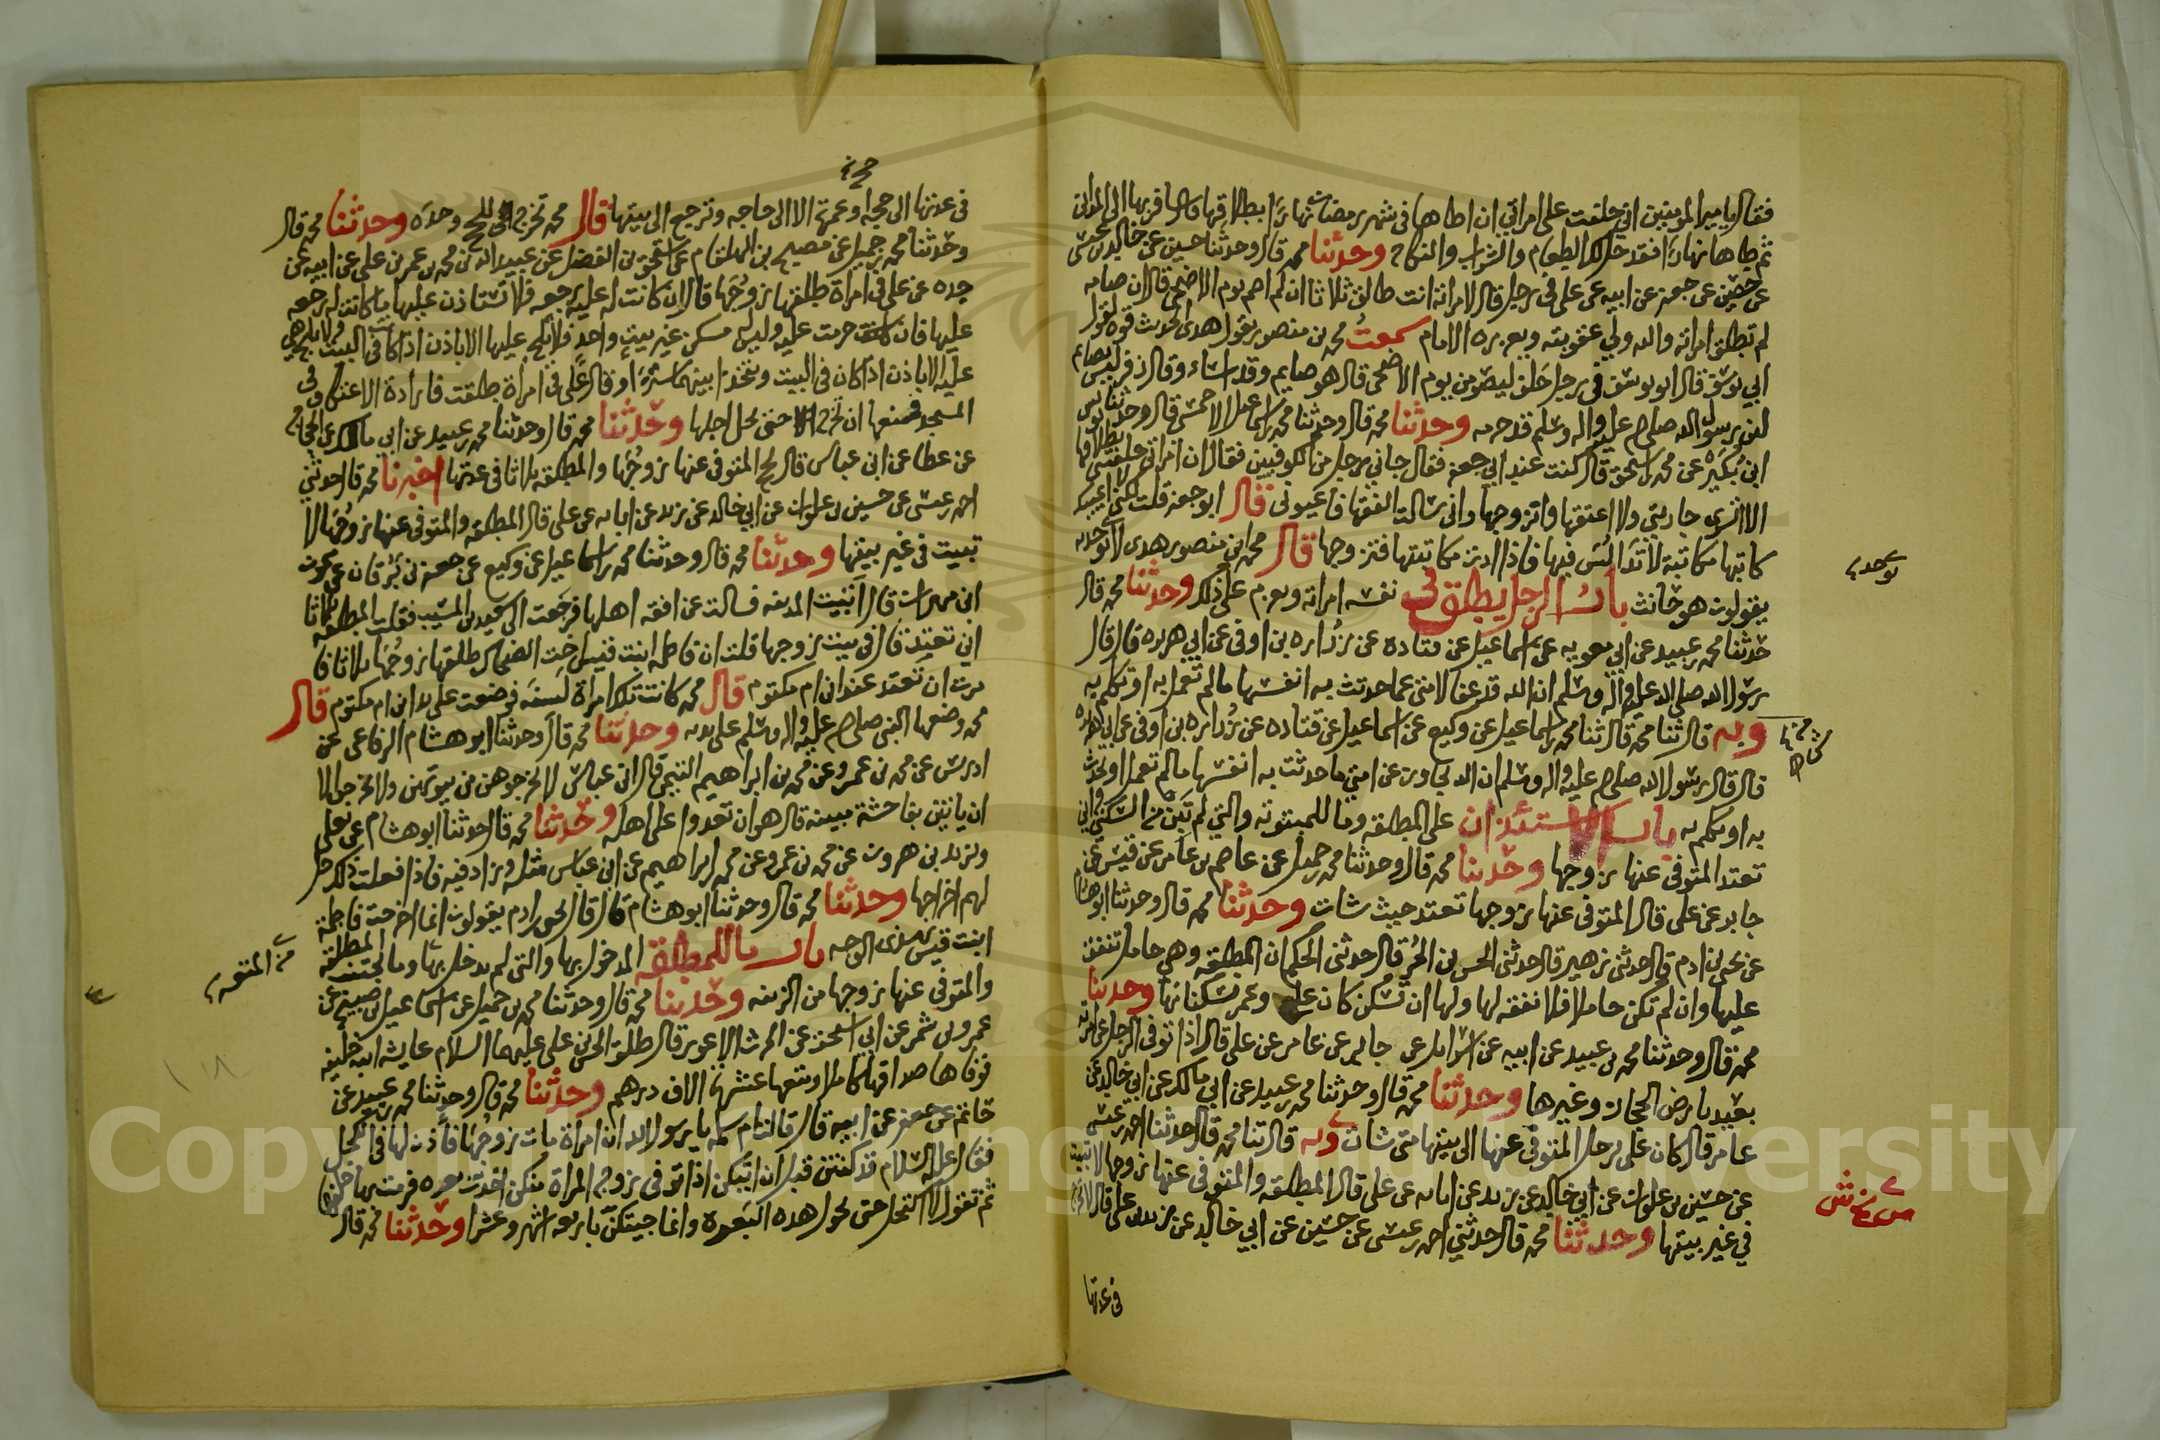 فقال يا امير المومنين اني حلفت على امراتي ان اطاها في شهر رمضان نهارا بطلاقها قال سافر بها الى المداين
ثم طاها نهارا فقد حل لك الطعام والشراب والنكاح وحدثنا محمد قال وحدثنا حسين عن خالد بن عيسى
عن حصين عن جعفر عن ابيه عن علي في رجل قال لامراته انت طالق ثلاثا ان لم اصم يوم الاضحى قال ان صامه
لم تطلق امراته والله ولي عقوبته ويعزره الامام سمعت محمد بن منصور يقول هذا الحديث قوه لقول
ابي يوسف قال ابو يوسف في رجل حلف ليصومن يوم الاضحى قال هو صايم وقد اساء وقال زفر ليس بصايم
لان رسول الله صلى الله عليه واله وسلم قد حرمه وحدثنا محمد قال وحدثنا محمد بن اسماعيل الاحمسي قال وحدثنا يونس
ابن بكير عن محمد بن اسحق قال كنت عند ابي جعفر فقال جاني رجل من الكوفيين فقال ان امراتي حلفتني بطلاقها
الا اتسرى جاريتي ولا اعتقها واتزوجها واني سالت الفقها فاعيوني فقال ابو جعفر قلت لكني لا اعيبك
كاتبها مكاتبة لا تدالس فيها فاذا ادت مكاتبتها فتزوجها قال محمد ابن منصور هذا لا توجد به
يقولون هو حانث باب الرجل يطلق في نفسه امراته ويعزم على ذلك وحدثنا محمد قال
حدثنا محمد بن عبيد عن ابي معويه عن اسماعيل عن قتادة عن زراره بن اوفى عن ابي هريره قال قال
رسول الله صلى الله عليه واله وسلم ان الله قد عفا لامتي عما حدثت به انفسها ما لم تعمل به او تكلم به
وبه قال ثنا محمد قال ثنا محمد بن اسماعيل عن وكيع عن اسماعيل عن قتاده عن زراره بن اوفى عن ابي هريره
قال قال رسول الله صلى الله عليه واله وسلم ان الله تجاوز عن امتي ما حدثت به انفسها ما لم تعمل او تحدث
به او تكلم به باب الاستئذان على المطلقه وما للمبتوته والتي لم تبن من السكنى واين
تعتد المتوفى عنها زوجها وحدثنا محمد قال وحدثنا محمد بن جميل عن عاصم بن عامر عن قيس عن
جابر عن علي قال المتوفى عنها زوجها تعتد حيث شات وحدثنا محمد قال وحدثنا ابو هشام
عن يحيى بن ادم قال حدثني زهير قال حدثني الحسن بن الحر قال حدثني الحكم ان المطلقه وهي حامل تنفق
عليها وان لم تكن حاملا فلا نفقه لها ولها ان تسكن كان علي وعمر يسكنانها وحدثنا
محمد قال وحدثنا محمد بن عبيد عن ابيه عن اسرايل عن جابر عن عامر عن علي قال اذا توفى الرجل عن امراته
بعيدا بارض الحجاز وغيرها وحدثنا محمد قال وحدثنا محمد بن عبيد عن ابي مالك عن ابي خالد عن
عامر قال كان علي يرحل المتوفى عنها الى بيتها متى شات وبه قال ثنا محمد قال حدثنا احمد بن عيسى
عن حسين بن علوان عن ابي خالد عن زيد عن ابايه عن علي قال المطلقه والمتوفى عنها زوجها لا تبيت
في غير بيتها وحدثنا محمد قال حدثني احمد بن عيسى عن حسين عن ابي خالد عن زيد بن علي قال لا تخرج
في عدتها
توجد
في عدتها الى حج او عمره الا الى حاجه وترجع الى بيتها قال محمد تخرج الى الحج وحده وحدثنا محمد قال
وحدثنا محمد بن جميل عن مصبح بن الهلقام عن اسحق بن الفضل عن عبيد الله بن محمد بن عمر بن علي عن ابيه عن
جده عن علي في امراة طلقها زوجها قال ان كانت له عليه رجعه فلا تستاذن عليها ما كانت له رجعه
عليها فان كانت حرمت عليه وليس له مسكن غير بيت واحد فلا يلج عليها الا باذن اذا كانا في البيت ولا تلج هي
عليه الا باذن اذا كان في البيت ويتخذ بينهما سترا وقال علي في امراة طلقت فارادة الاعتكاف في
المسجد فمنعها ان تخرج حتى تحل اجلها وحدثنا محمد قال وحدثنا محمد بن عبيد عن ابي مالك عن الحجاج
عن عطا عن ابن عباس قال تحج المتوفى عنها زوجها والمطلقه ثلاثا في عدتها اخبرنا محمد قال حدثني
احمد بن عيسى عن حسين بن علوان عن ابي خالد عن زيد عن ابايه عن علي قال المطلقه والمتوفى عنها زوجها لا
تبيت في غير بيتها وحدثنا محمد قال وحدثنا محمد بن اسماعيل عن وكيع عن جعفر بن برقان عن ميمون
ابن مهران قال اتيت المدينه فسالت عن افقه اهلها فرفعت الى سعيد بن المسيب فقلت المطلقه ثلاثا
اين تعتد قال في بيت زوجها قلت ان فاطمه ابنت قيس اخت الضحاك طلقها زوجها ثلاثا فا
مرت ان تعتد عند ابن ام مكتوم قال محمد كانت تلك امراة لسنه فوضعت على يد ابن ام مكتوم قال
محمد وضعها النبي صلى الله عليه واله وسلم على يديه وحدثنا محمد قال وحدثنا ابو هشام الرفاعي عن
ادريس عن محمد بن عمرو عن محمد بن ابراهيم التيمي قال ابن عباس لا تخرجوهن من بيوتهن ولا يخرجن الا
ان ياتين بفاحشة مبينه قال هو ان تعدوا على اهله وحدثنا محمد قال وحدثنا ابو هشام عن يعلى
ويزيد بن هرون عن محمد بن عمرو عن محمد بن ابراهيم عن ابن عباس مثله وزاد فيه فاذا فعلت ذلك حل
لهم اخراجها وحدثنا محمد قال وحدثنا ابو هشام قال قال يحيى بن ادم يقولون انما اخرجت فاطمة
ابنت قيس بهذا الوجه باب ما للمطلقه المدخول بها والتي لم يدخل بها وما تجتنب المطلقة
والمتوفى عنها زوجها من الزينه وحدثنا محمد قال وحدثنا محمد بن جميل عن اسماعيل بن صبيح عن
عمرو بن شمر عن ابي اسحق عن الحرث الاعور قال طلق الحسن بن علي عليهما السلام عايشه ابنة خليفه
فوفاها صداقها كاملا ومتعها عشرة الاف درهم وحدثنا محمد قال وحدثنا محمد بن عبيد عن
حاتم عن جعفر عن ابيه قال قالت ام سلمه يا رسول الله ان امراة مات زوجها فتاذن لها في الكحل
فقال عليه السلام قد كنتن قبل ان اتيكن اذا توفى زوج المراة منكن اخذت بعره فرمت بها خلفها
ثم تقول لا اكتحل حتى تحول هذه البعره وانما جيتكن باربعه اشهر وعشرا وحدثنا محمد قال
من المتعه
Copyright © King Saud University